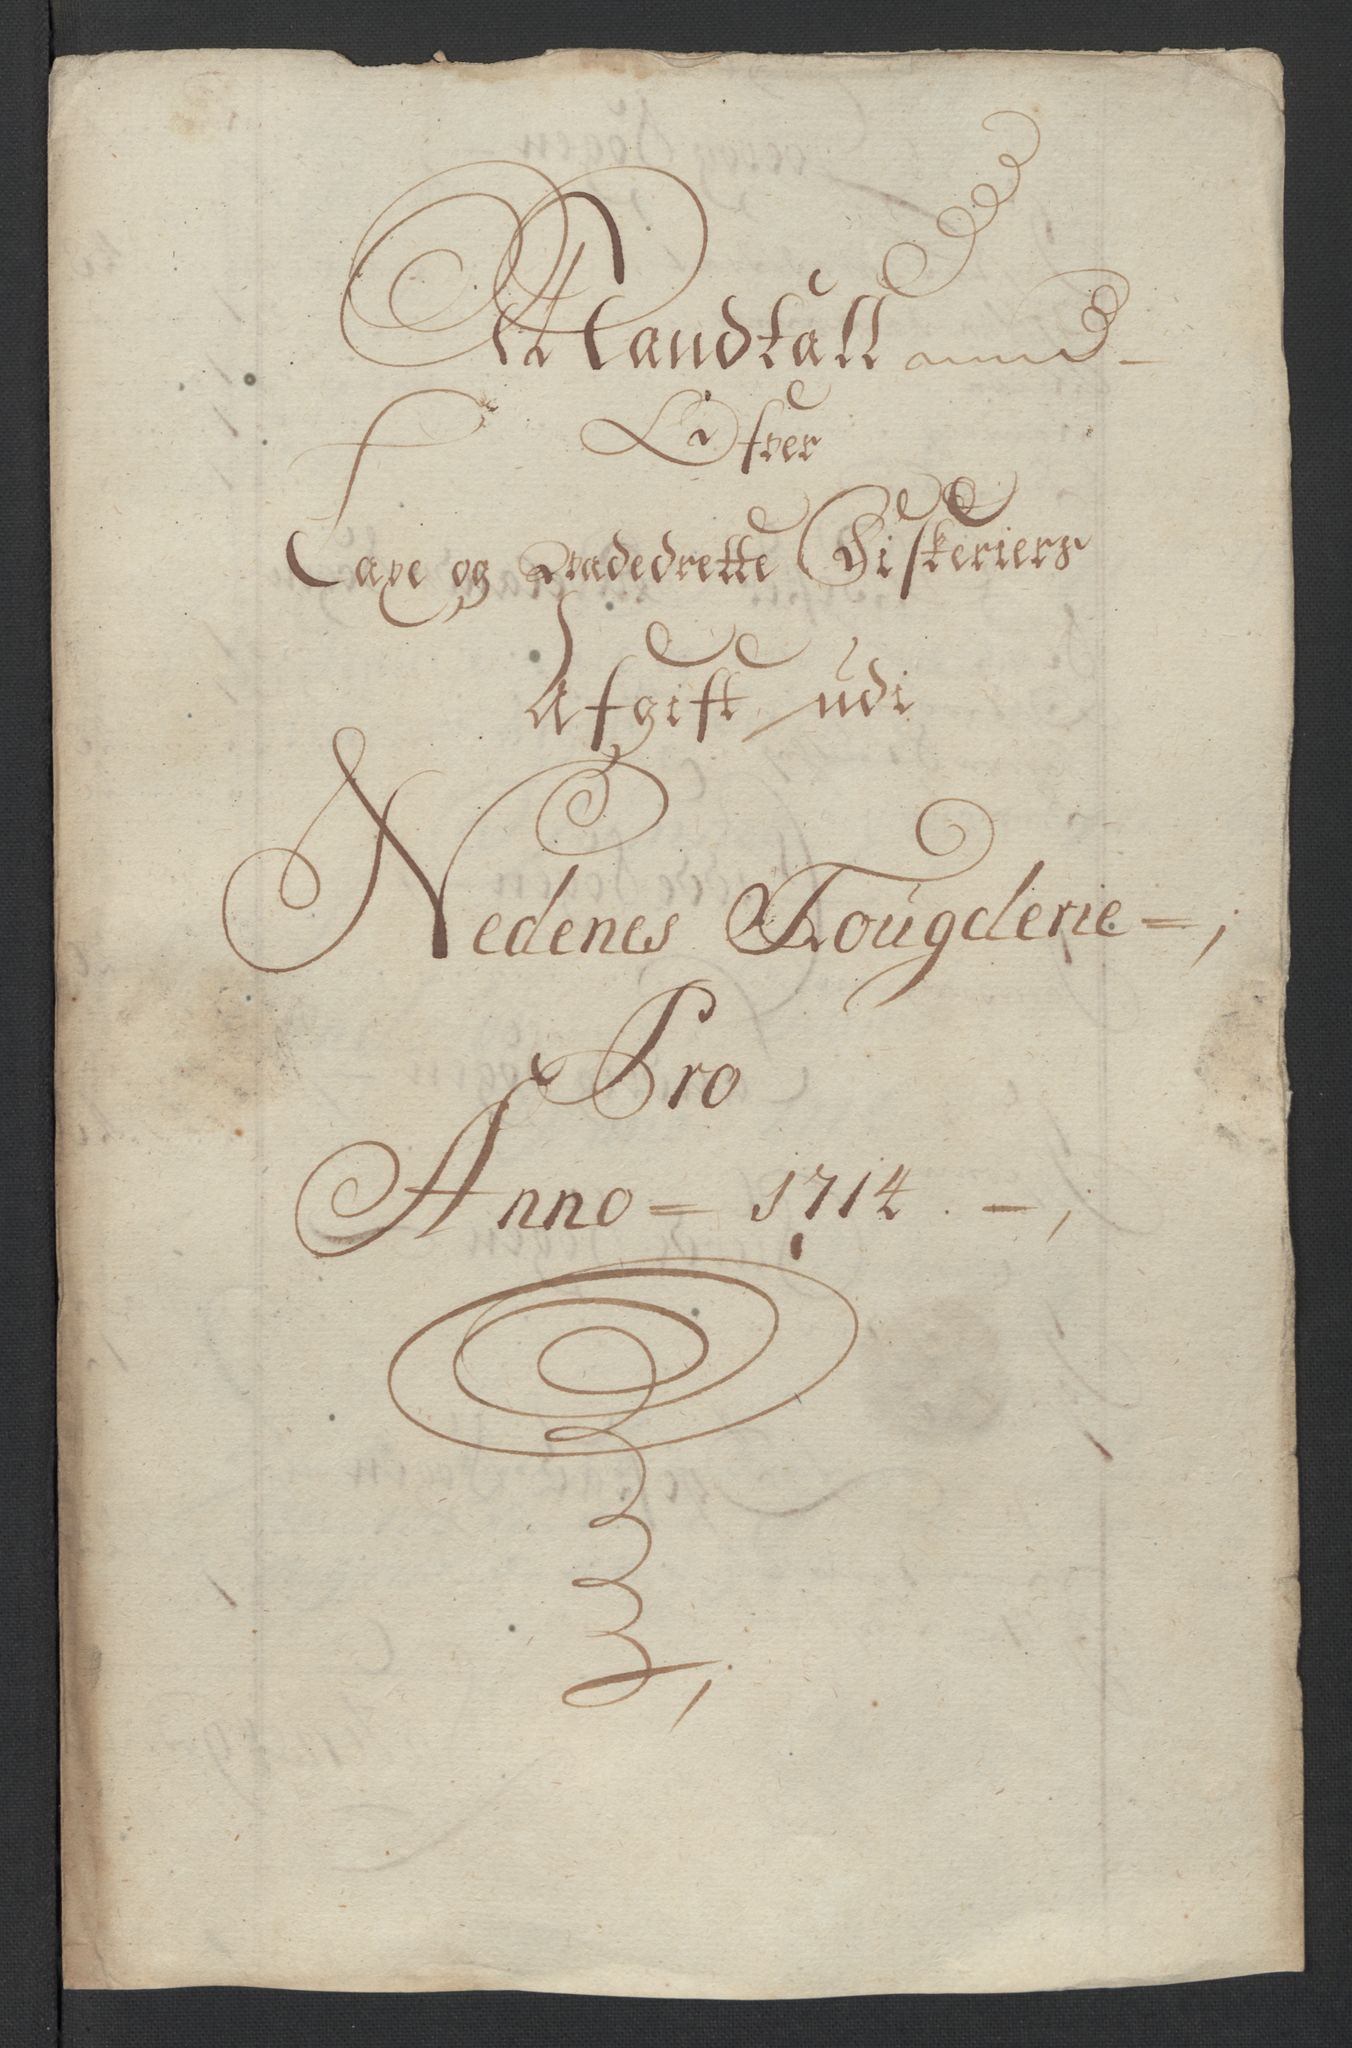 Mandtall
Ofver
Laxe og Wadedrette Fiskeriers
Afgift udi
Nedenes Fougderie =,
Pro
Anno = 1714. -,